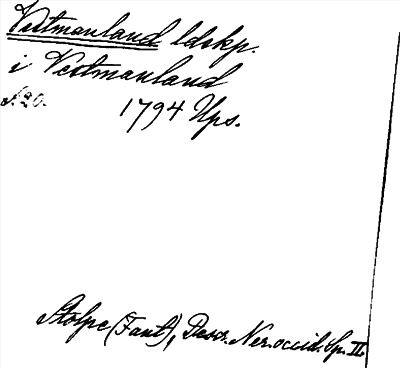 Vestmanland ldskp.
i Vestmanland
S. 20. 1794 Ups.
Stolpe (Fant), Descr. Ner. occid. Sp. II